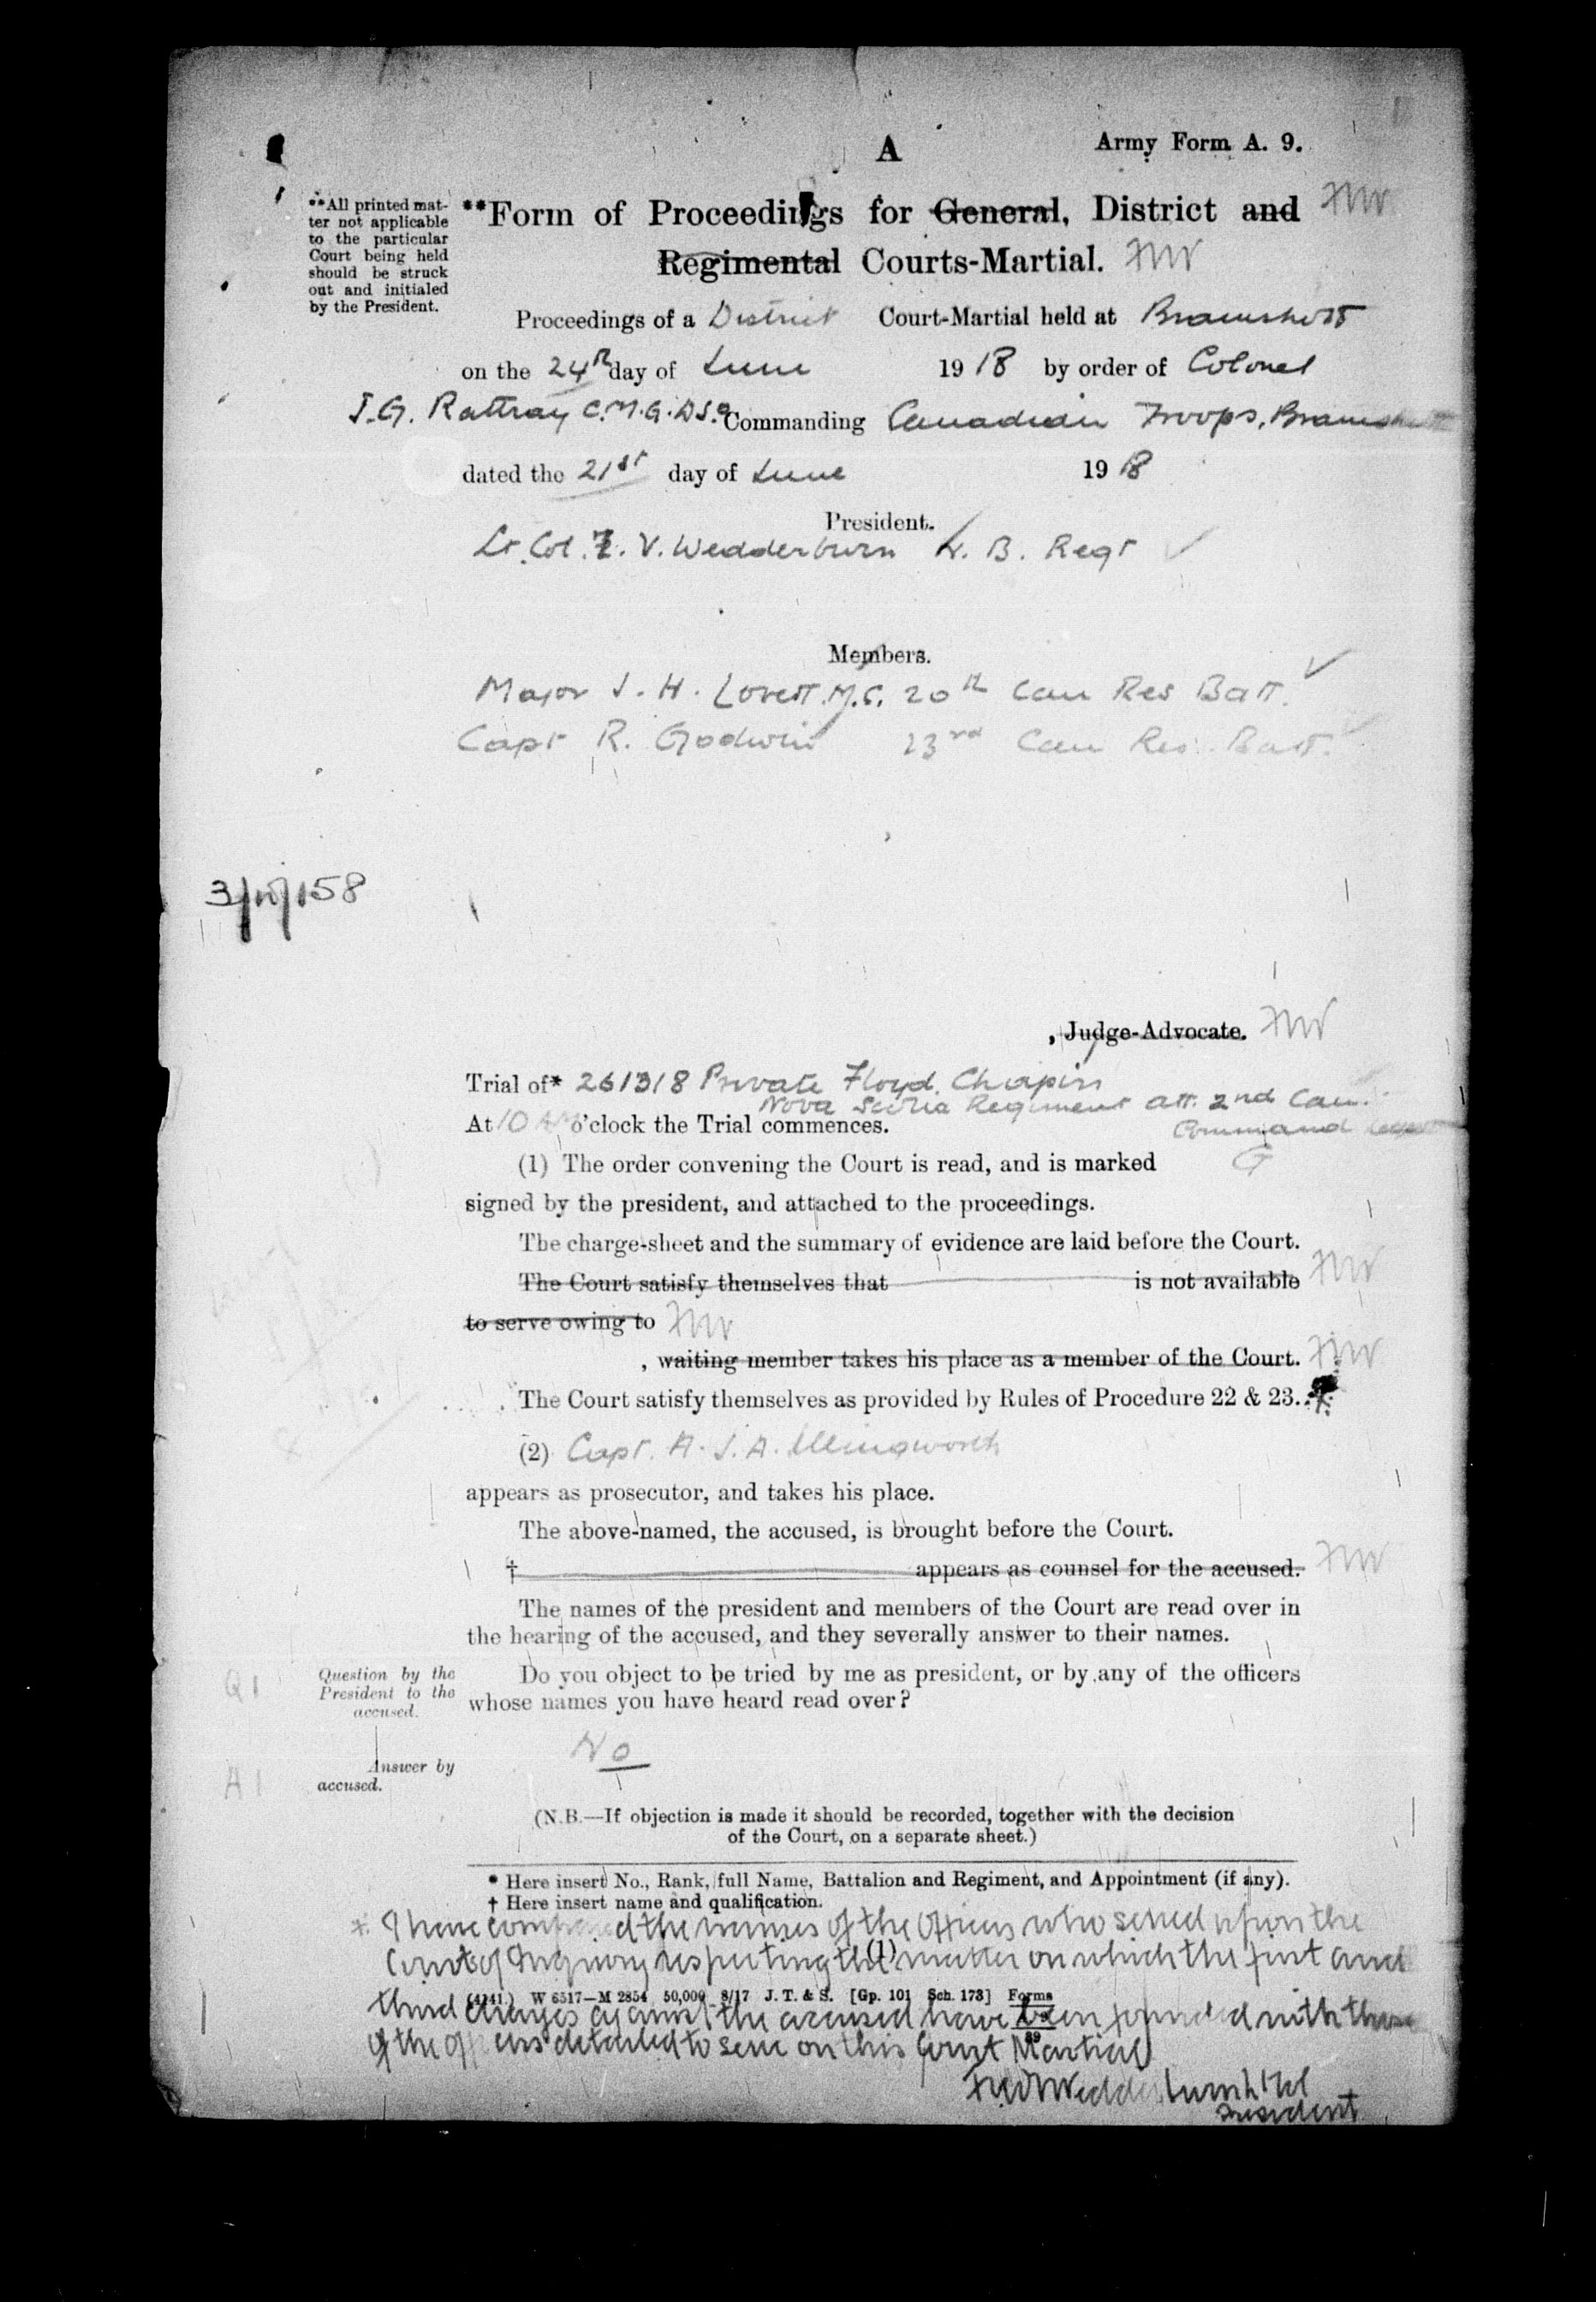 A
Army Form A. 9.
**All printed mat-
ter not applicable
to the particular
Court being held
should be struck
out and initialed
by the President.
**Form of Proceedings for General, District and FVW
Regimental Courts-Martial. FVW
Proceedings of a District Court-Martial held at Bramshott
on the 24th day of June 1918 by order of Colonel
J.G. Rattray C.M.G. D.S.O. Commanding Canadian Troops, Bramshott
dated the 21st day of June 1918
President.
Lt. Col. F. V. Wedderburn N. B. Regt
Members.
Major J. H. Lovett. M.C. 20th Can Res Batt.
Capt R. Godwin 23rd Can Res. Batt.
, Judge-Advocate. FVW
Trial of* 261318 Private Floyd Chapin
Nova Scotia Regiment att. 2nd Can.
Command
At 10 AM o'clock the Trial commences.
(1) The order convening the Court is read, and is marked G
signed by the president, and attached to the proceedings.
The charge-sheet and the summary of evidence are laid before the Court.
The Court satisfy themselves that is not available FVW
to serve owing to FVW
, waiting member takes his place as a member of the Court. FVW
The Court satisfy themselves as provided by Rules of Procedure 22 & 23.
(2) Capt. A. J. A. Illingworth
appears as prosecutor, and takes his place.
The above-named, the accused, is brought before the Court.
† appears as counsel for the accused. FVW
The names of the president and members of the Court are read over in
the hearing of the accused, and they severally answer to their names.
Q1
Question by the
President to the
accused.
Do you object to be tried by me as president, or by any of the officers
whose names you have heard read over?
A1
Answer by
accused.
No
(N.B.—If objection is made it should be recorded, together with the decision
of the Court, on a separate sheet.)
* Here insert No., Rank, full Name, Battalion and Regiment, and Appointment (if any).
† Here insert name and qualification.
I have compared the names of the Officers who served upon the
Court of Inquiry respecting the matter on which the first and
(1)
third charges against the accused have been founded with those
(4141.) W 6517—M 2854 50,000 8/17 J. T. & S. [Gp. 101 Sch. 173] Forms
of the officers detailed to serve on this Court Martial
Wedderburn Lt Col
President